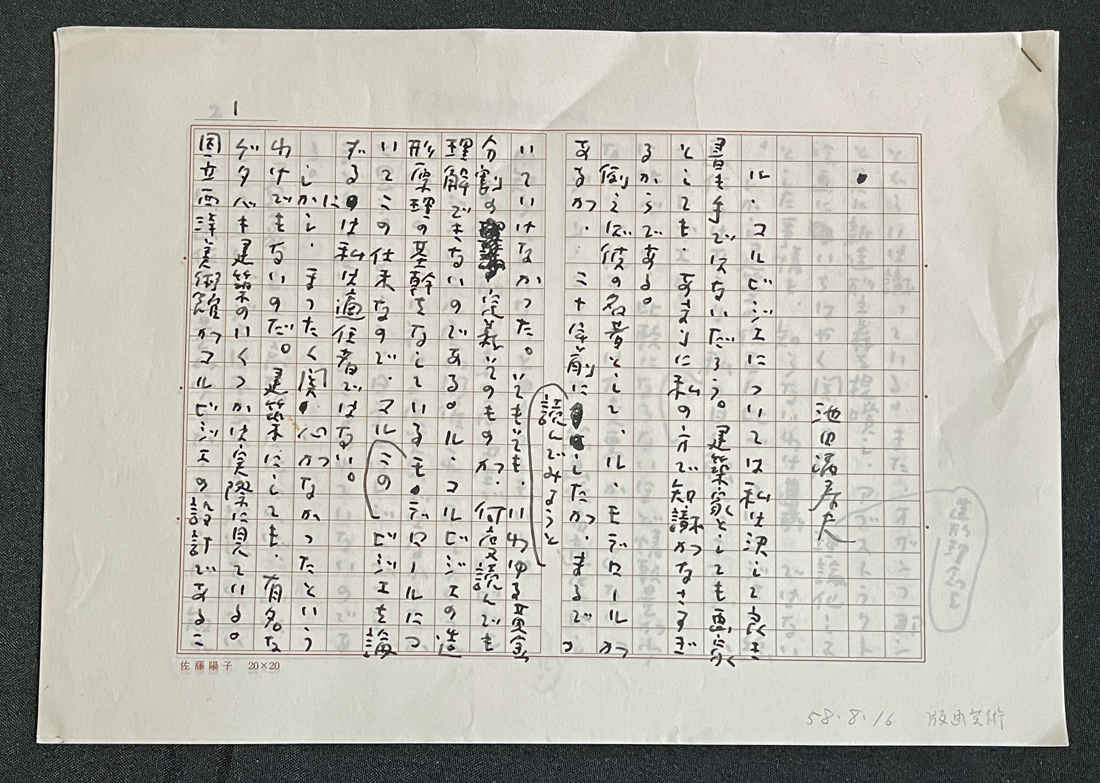 1
池田満寿夫
ル・コルビジェについては私は決して良き
読書も手ではないだろう。建築家としても画家
としても、あまりに私の方で知識がなさすぎ
るからである。
例えば彼の名著として、ル・モデロールが
あるが、二十年前に したが、まるでつ
読んでみようと
いていけなかった。いてもいても、いわゆる黄金
分割の 定義いてのものが、何度読んでも
理解できないのである。ル・コルビジェの造
形原理の基幹をなしているモデロールにつ
いてこの仕末なのでマル ビジェを論
この
ずるのは私は適任者ではない。
しかし、まったく関心がなかったという
わけでもないのだ。建築にしても、有名な
ゲタバキ建築のいくつかは実際に見ている。
国立西洋美術館がコルビジェの設計であるこ
佐藤陽子 20×20
58.8.16 版画芸術